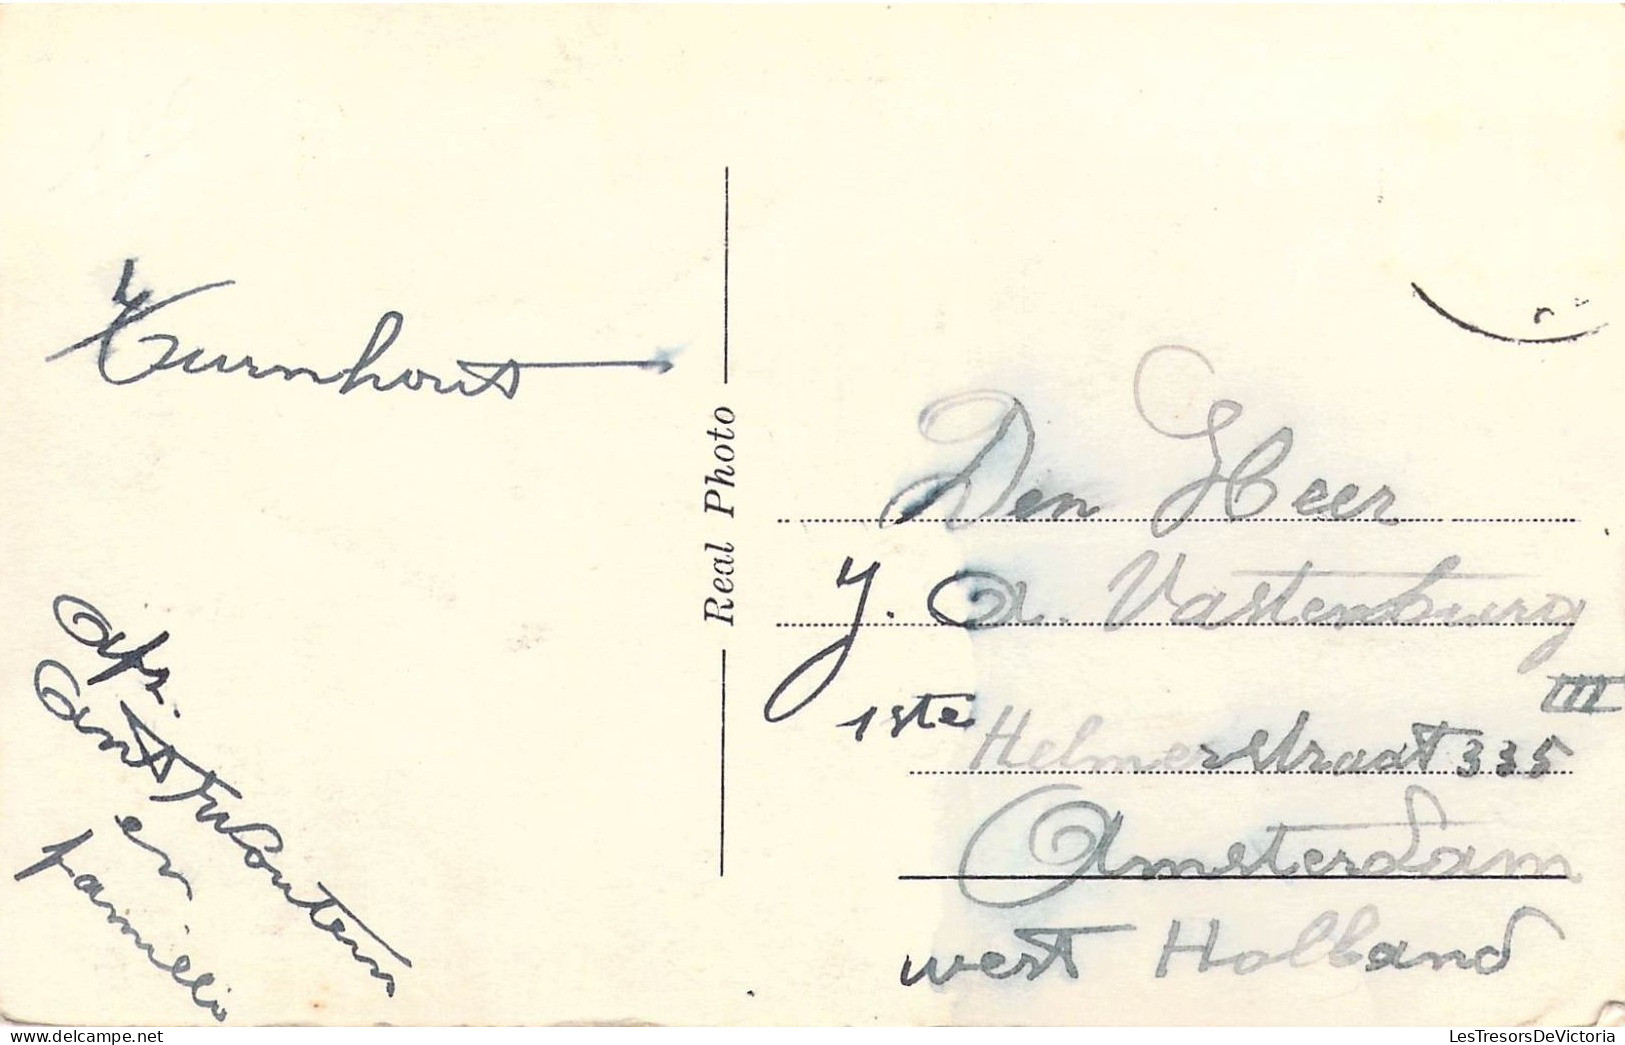 Turnhout
Afz.
en
familie
Real Photo
Den Heer
J. A. Vastenburg
1ste Helmerstraat 335 III
Amsterdam
west Holland
LesTresorsDeVictoria